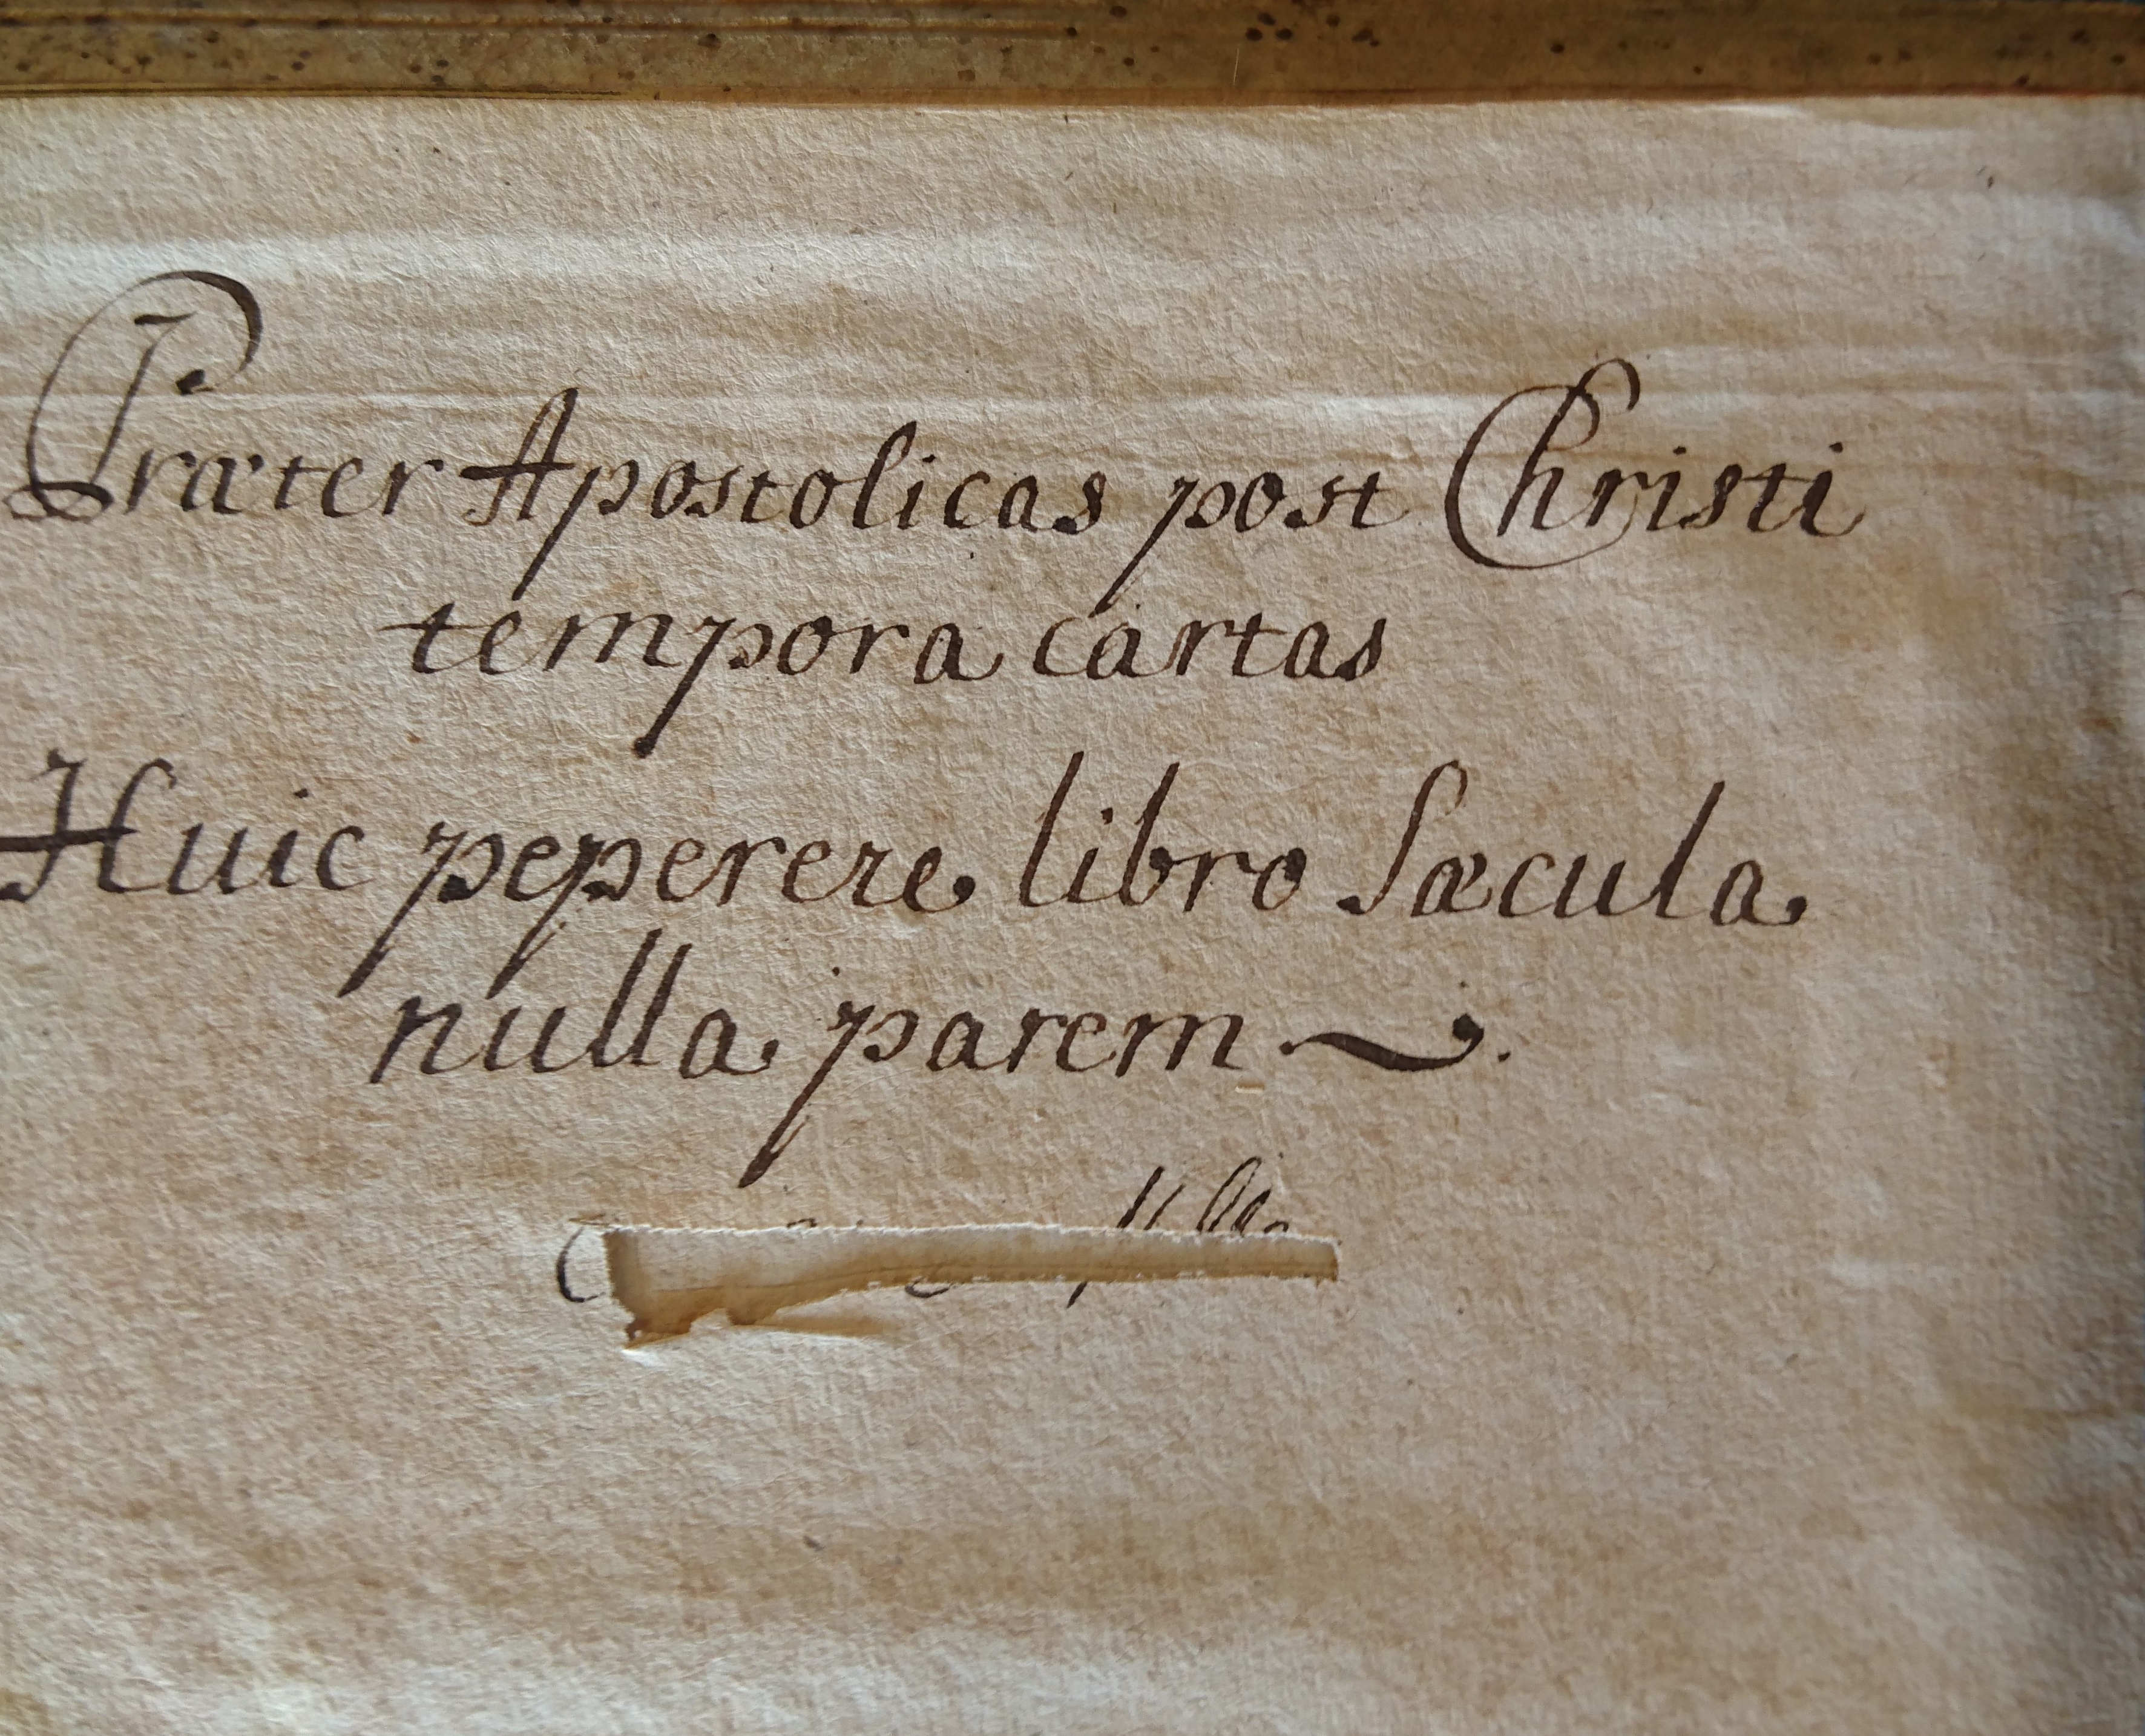 Præter Apostolicas post Christi
tempora cartas
Huic peperere libro Sæcula
nulla parem